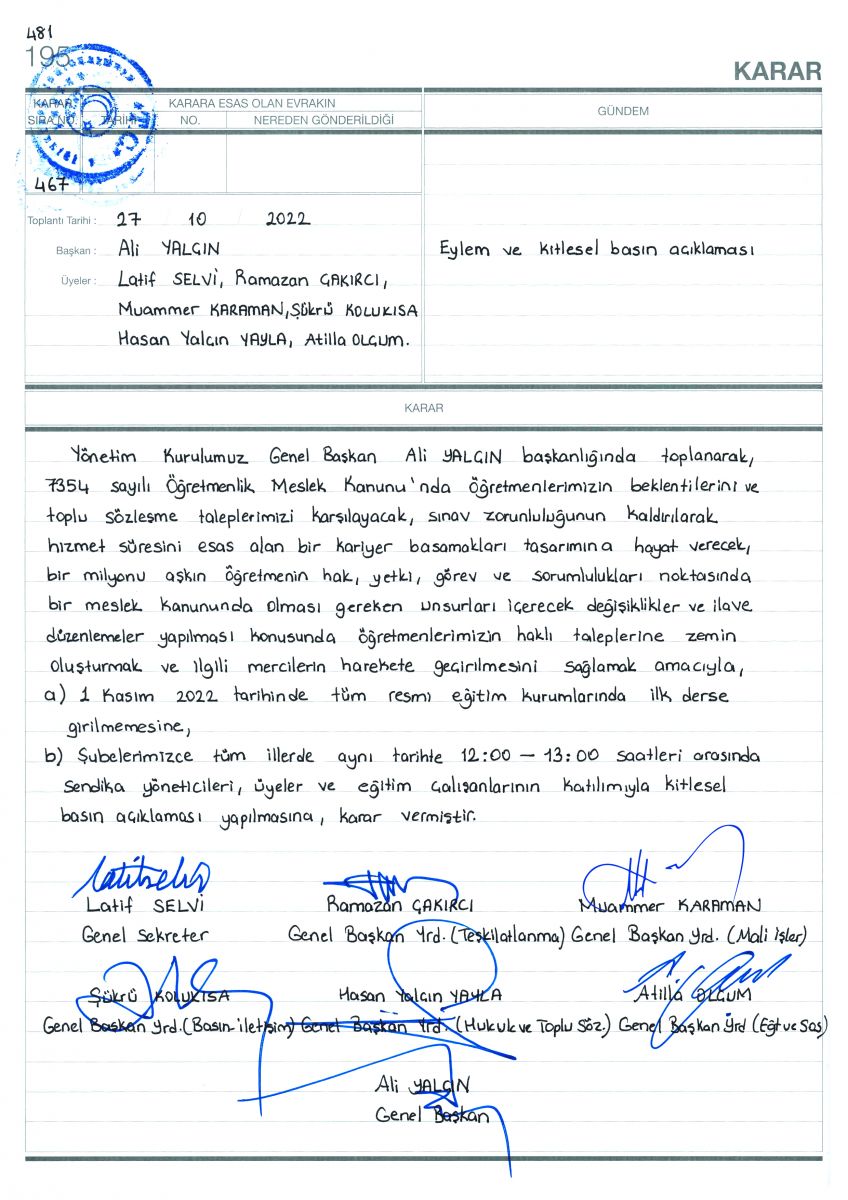 481
195
KARAR
KARAR SIRA NO.
TARİHİ
KARARA ESAS OLAN EVRAKIN
NO.
NEREDEN GÖNDERİLDİĞİ
GÜNDEM
467
Toplantı Tarihi : 27 / 10 / 2022
Başkan : Ali YALÇIN
Eylem ve kitlesel basın açıklaması
Üyeler : Latif SELVİ, Ramazan ÇAKIRCI,
Muammer KARAMAN, Şükrü KOLUKISA
Hasan Yalçın YAYLA, Atilla OLÇUM.
KARAR
Yönetim Kurulumuz Genel Başkan Ali YALÇIN başkanlığında toplanarak,
7354 sayılı Öğretmenlik Meslek Kanunu'nda öğretmenlerimizin beklentilerini ve
toplu sözleşme taleplerimizi karşılayacak, sınav zorunluluğunun kaldırılarak
hizmet süresini esas alan bir kariyer basamakları tasarımına hayat verecek,
bir milyonu aşkın öğretmenin hak, yetki, görev ve sorumlulukları noktasında
bir meslek kanununda olması gereken unsurları içerecek değişiklikler ve ilave
düzenlemeler yapılması konusunda öğretmenlerimizin haklı taleplerine zemin
oluşturmak ve ilgili mercilerin harekete geçirilmesini sağlamak amacıyla,
a) 1 Kasım 2022 tarihinde tüm resmi eğitim kurumlarında ilk derse
girilmemesine,
b) Şubelerimizce tüm illerde aynı tarihte 12:00 – 13:00 saatleri arasında
sendika yöneticileri, üyeler ve eğitim çalışanlarının katılımıyla kitlesel
basın açıklaması yapılmasına, karar vermiştir.
Latif SELVİ
Ramazan ÇAKIRCI
Muammer KARAMAN
Genel Sekreter
Genel Başkan Yrd. (Teşkilatlanma)
Genel Başkan Yrd. (Mali işler)
Şükrü KOLUKISA
Hasan Yalçın YAYLA
Atilla OLÇUM
Genel Başkan Yrd. (Basın-iletişim)
Genel Başkan Yrd. (Hukuk ve Toplu Söz.)
Genel Başkan Yrd (Eğt ve Sos)
Ali YALÇIN
Genel Başkan